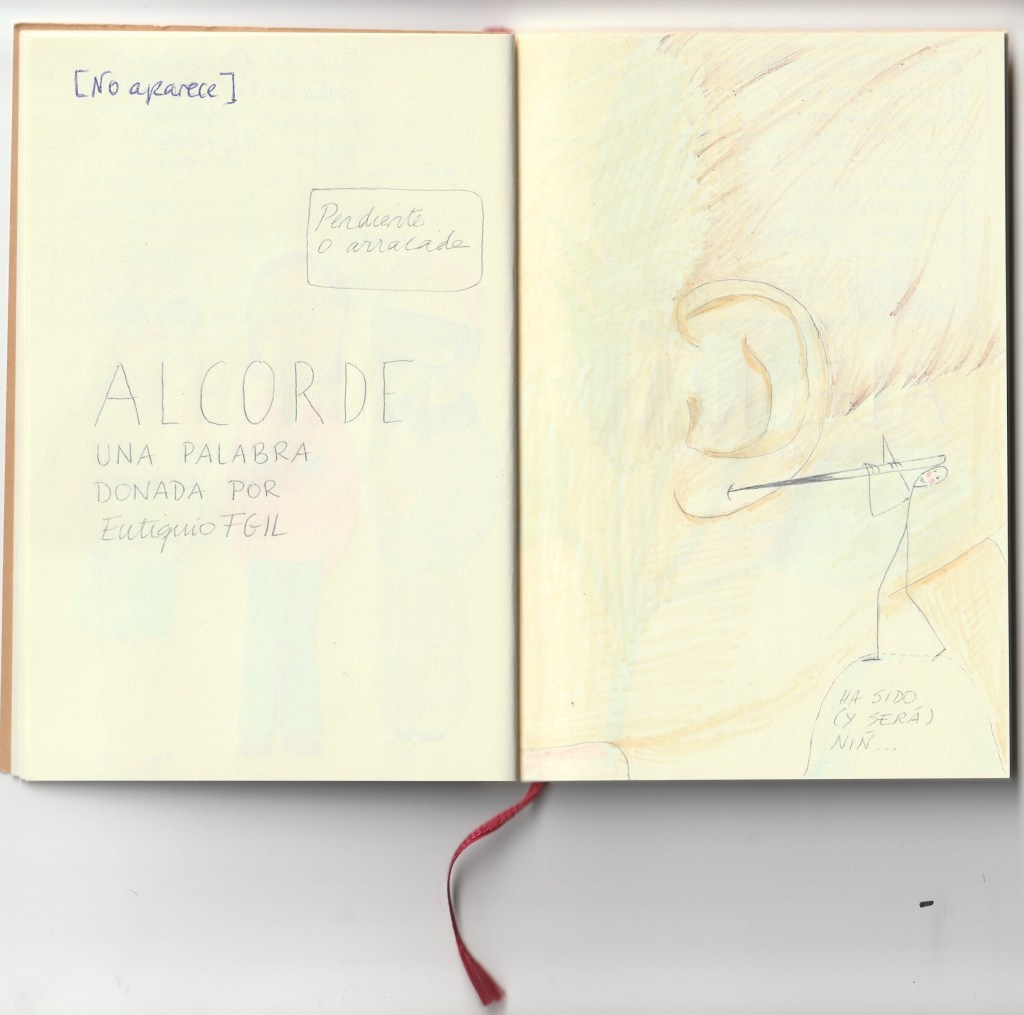 [No aparece]
Pendiente
o arracada
ALCORDE
UNA PALABRA
DONADA POR
Eutiquio FGIL
HA SIDO
(Y SERÁ)
NIÑ...